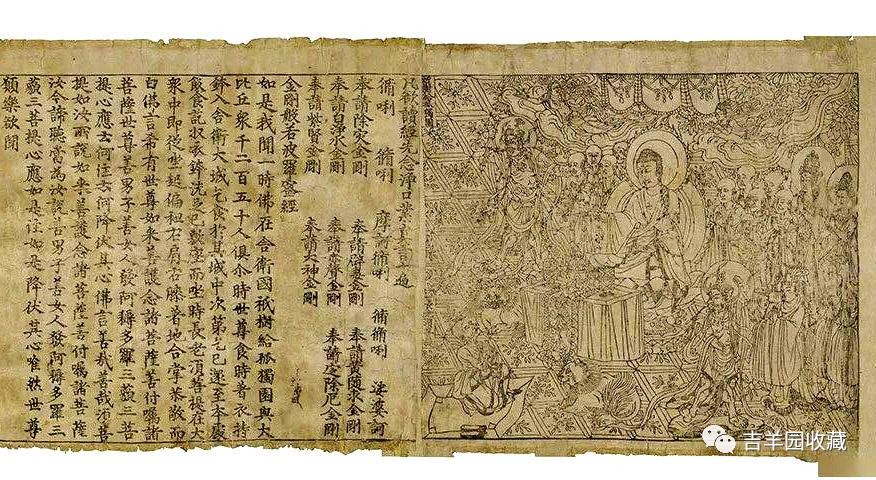 凡欲讀經先念淨口業真言一遍
脩唎 脩唎 摩訶脩唎 脩脩唎 娑婆訶
奉請除灾金剛 奉請辟毒金剛 奉請黃隨求金剛
奉請白淨水金剛 奉請赤聲金剛 奉請定除厄金剛
奉請紫賢金剛 奉請大神金剛
金剛般若波羅蜜經
如是我聞一時佛在舍衛國祇樹給孤獨園與大
比丘衆千二百五十人俱尒時世尊食時著衣持
鉢入舍衛大城乞食於其城中次第乞已還至本處
飯食訖收衣鉢洗足已敷座而坐時長老須菩提在大
衆中即從坐起偏袒右肩右膝著地合掌恭敬而
白佛言希有世尊如來善護念諸菩薩善付囑諸
菩薩世尊善男子善女人發阿耨多羅三藐三菩
提心應云何住云何降伏其心佛言善哉善哉須菩
提如汝所說如來善護念諸菩薩善付囑諸菩薩
汝今諦聽當為汝說善男子善女人發阿耨多羅三
藐三菩提心應如是住如是降伏其心唯然世尊
願樂欲聞
吉羊园收藏